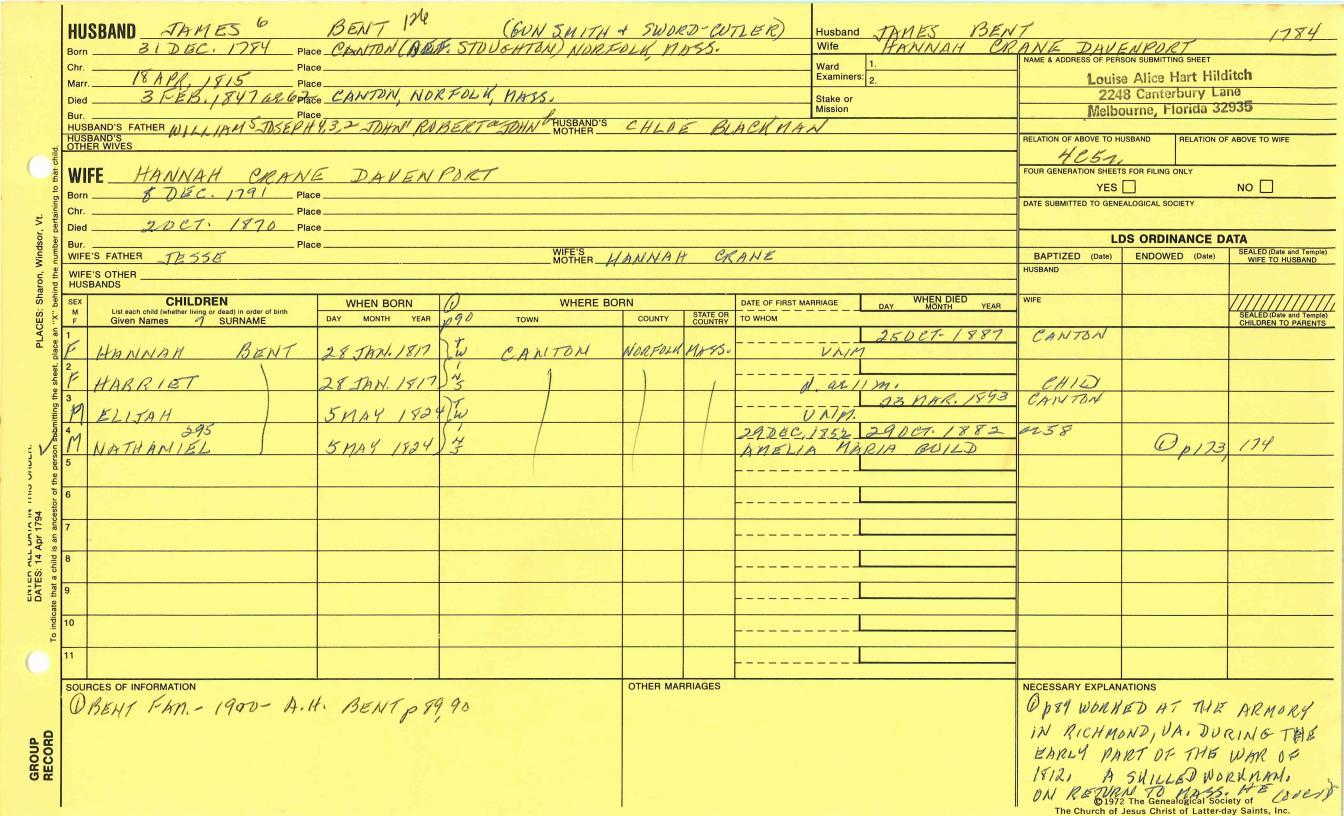 HUSBAND JAMES 6 BENT 126 (GUN SMITH & SWORD-CUTLER)
Born 31 DEC. 1784 Place CANTON ( STOUGHTON) NORFOLK, MASS.
Chr. Place
Marr. 18 APR, 1815 Place
Died 3 FEB. 1847 or 62 Place CANTON, NORFOLK, MASS.
Bur. Place
HUSBAND'S FATHER WILLIAM 5 JOSEPH 4,3,2 JOHN 1 ROBERT a JOHN b HUSBAND'S MOTHER CHLOE BLACKMAN
HUSBAND'S OTHER WIVES
Husband JAMES BENT 1784
Wife HANNAH CRANE DAVENPORT
Ward Examiners: 1.
2.
Stake or Mission
NAME & ADDRESS OF PERSON SUBMITTING SHEET
Louise Alice Hart Hilditch
2248 Canterbury Lane
Melbourne, Florida 32935
RELATION OF ABOVE TO HUSBAND RELATION OF ABOVE TO WIFE
4C5r.
FOUR GENERATION SHEETS FOR FILING ONLY
YES NO
DATE SUBMITTED TO GENEALOGICAL SOCIETY
WIFE HANNAH CRANE DAVENPORT
Born 8 DEC. 1791 Place
Chr. Place
Died 2 OCT. 1870 Place
Bur. Place
WIFE'S FATHER JESSE WIFE'S MOTHER HANNAH CRANE
WIFE'S OTHER HUSBANDS
LDS ORDINANCE DATA
BAPTIZED (Date) ENDOWED (Date) SEALED (Date and Temple) WIFE TO HUSBAND
HUSBAND
WIFE
SEALED (Date and Temple) CHILDREN TO PARENTS
SEX M F CHILDREN WHEN BORN ① p90 WHERE BORN DATE OF FIRST MARRIAGE WHEN DIED
List each child (whether living or dead) in order of birth
Given Names 7 SURNAME DAY MONTH YEAR TOWN COUNTY STATE OR COUNTRY TO WHOM DAY MONTH YEAR
1 25 OCT. 1887 CANTON
F HANNAH BENT 28 JAN. 1817 TW CANTON NORFOLK MASS. UNM
2 INS
F HARRIET 28 JAN. 1817 CHILD
3 23 MAR. 1893 CANTON
M ELIJAH 5 MAY 1824 TW UNM.
4 295 INS 29 DEC, 1852 29 OCT. 1882 or 58
M NATHANIEL 5 MAY 1824 AMELIA MARIA GUILD ① p173, 174
5
6
7
8
9
10
11
SOURCES OF INFORMATION
① BENT FAM. - 1900 - A.H. BENT p 89, 90
OTHER MARRIAGES
NECESSARY EXPLANATIONS
① p89 WORKED AT THE ARMORY
IN RICHMOND, VA. DURING THE
EARLY PART OF THE WAR OF
1812. A SKILLED WORKMAN.
ON RETURN TO MASS. HE (over)
©1972 The Genealogical Society of
The Church of Jesus Christ of Latter-day Saints, Inc.
PLACES: Sharon, Windsor, Vt.
DATES: 14 Apr 1794
To indicate that a child is an ancestor of the person submitting the sheet, place an "X" behind the number pertaining to that child.
GROUP RECORD